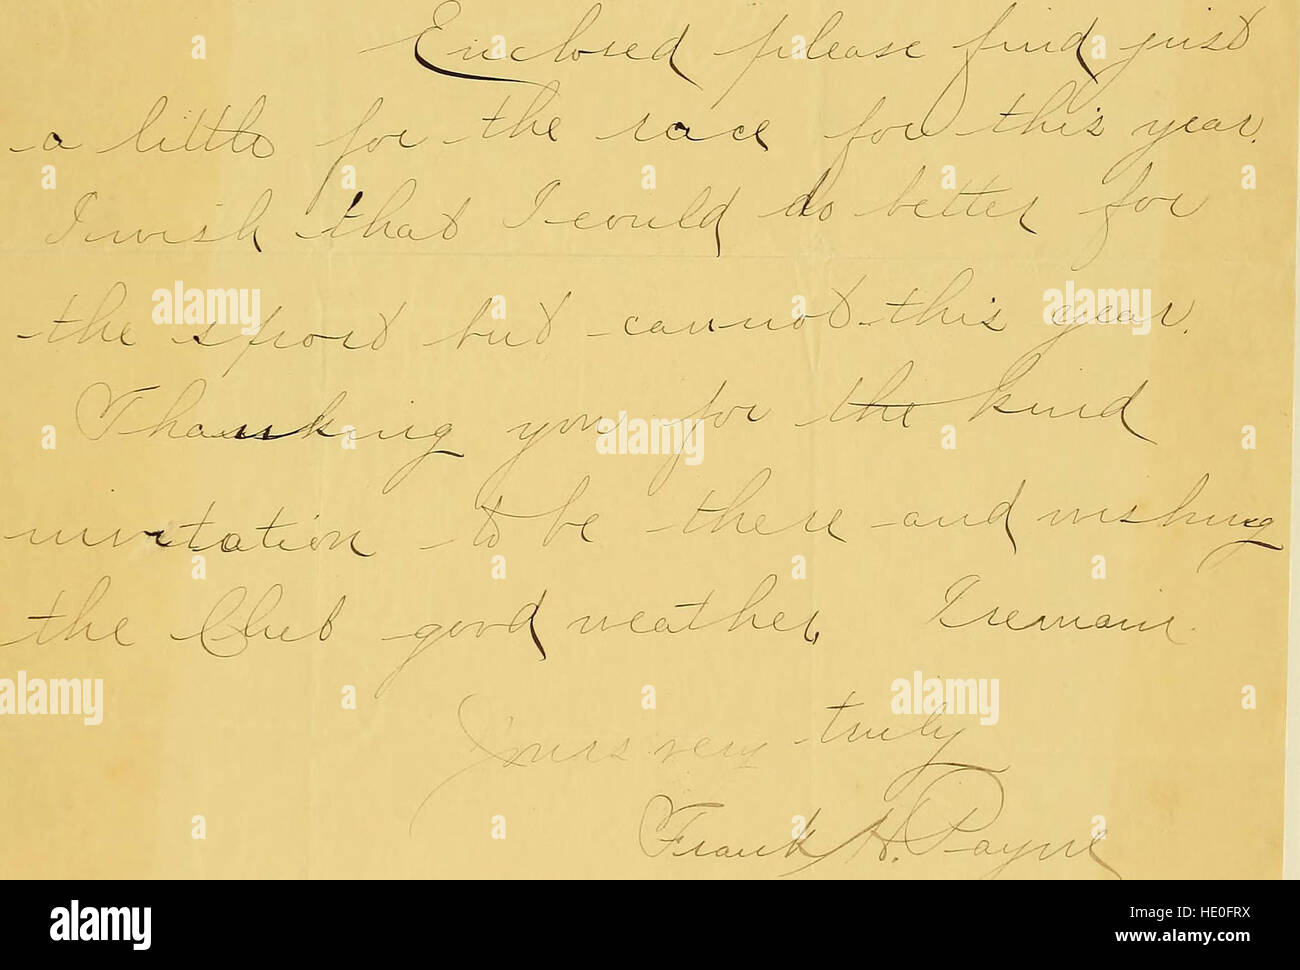 Enclosed please find just
a little for the race for this year.
I wish that I could do better for
the sport but cannot this year.
Thanking you for the kind
invitation to be there and wishing
the Club good weather, I remain.
Yours very truly
Frank H. Payne
alamy stock photo
HE0FRX
www.alamy.com